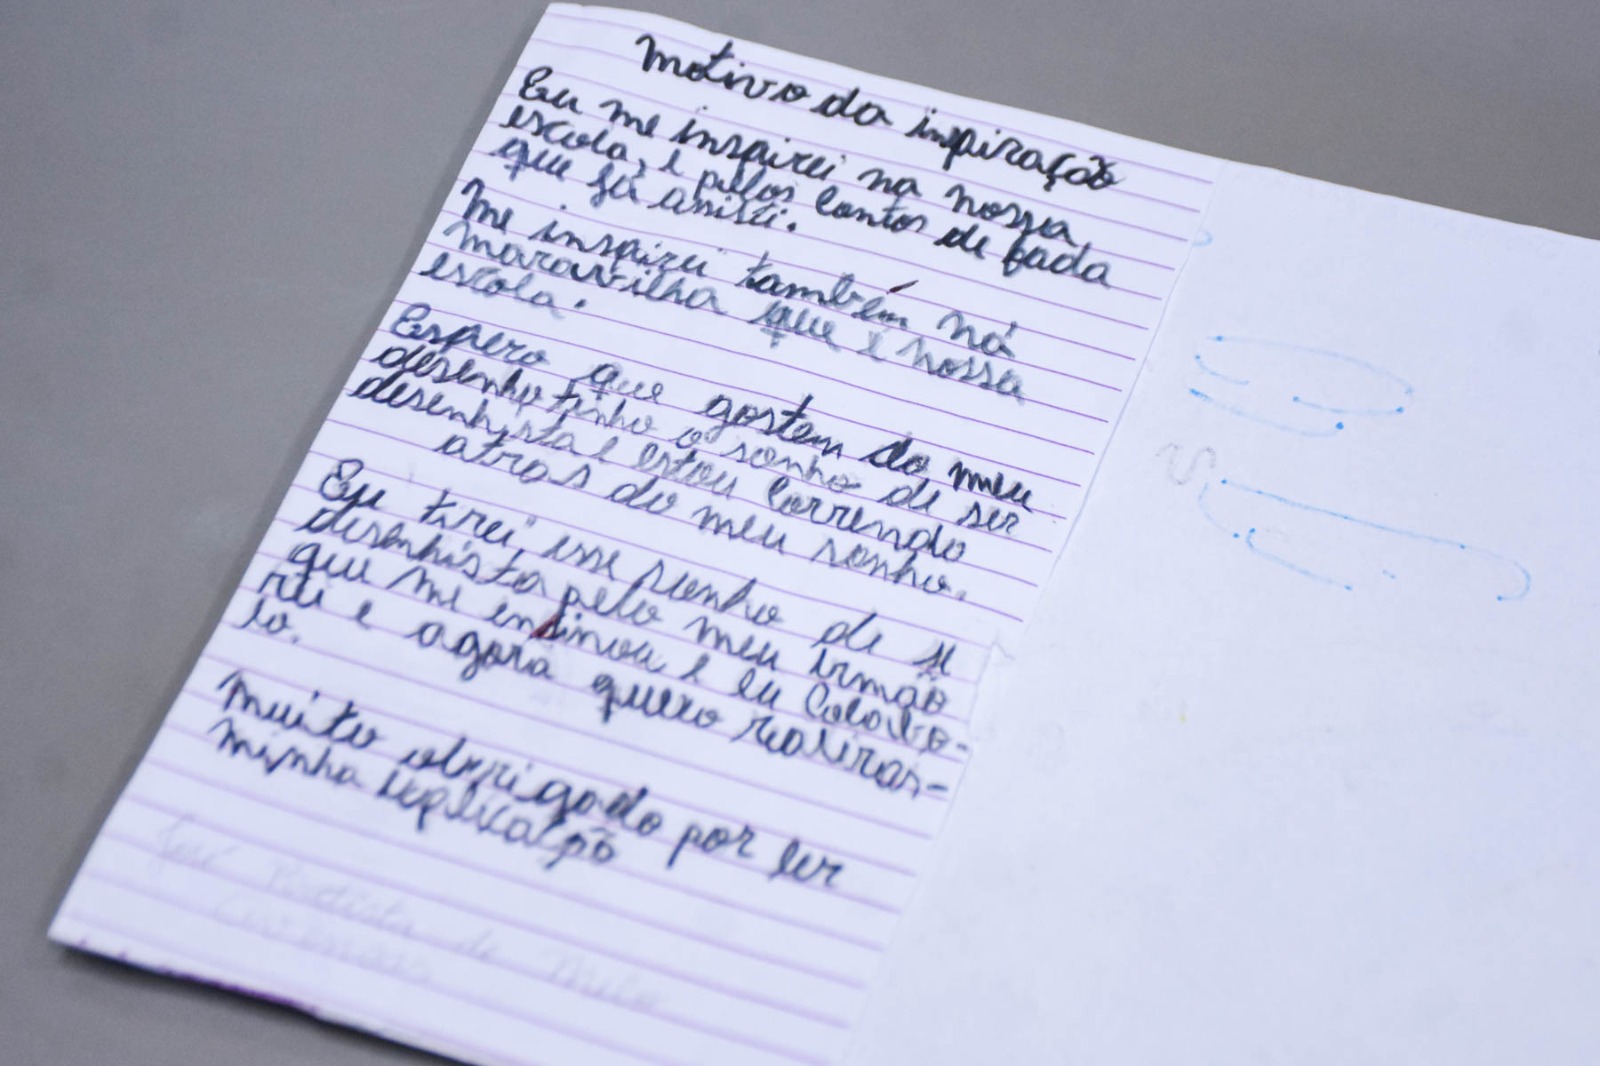 Motivo da inspiração
Eu me inspirei na nossa
escola, e pelos contos de fada
que já assisti.
Me inspirei também ná
maravilha que é nossa
escola.
Espero que gostem do meu
desenho tinho o sonho de ser
desenhista e estou correndo
atras do meu sonho.
Eu tirei esse sonho de se
desenhista pelo meu irmão
que me ensinou e eu colabo-
rei e agora quero realizar-
lo.
Muito obrigado por ler
minha explicação
José Batista de Melo